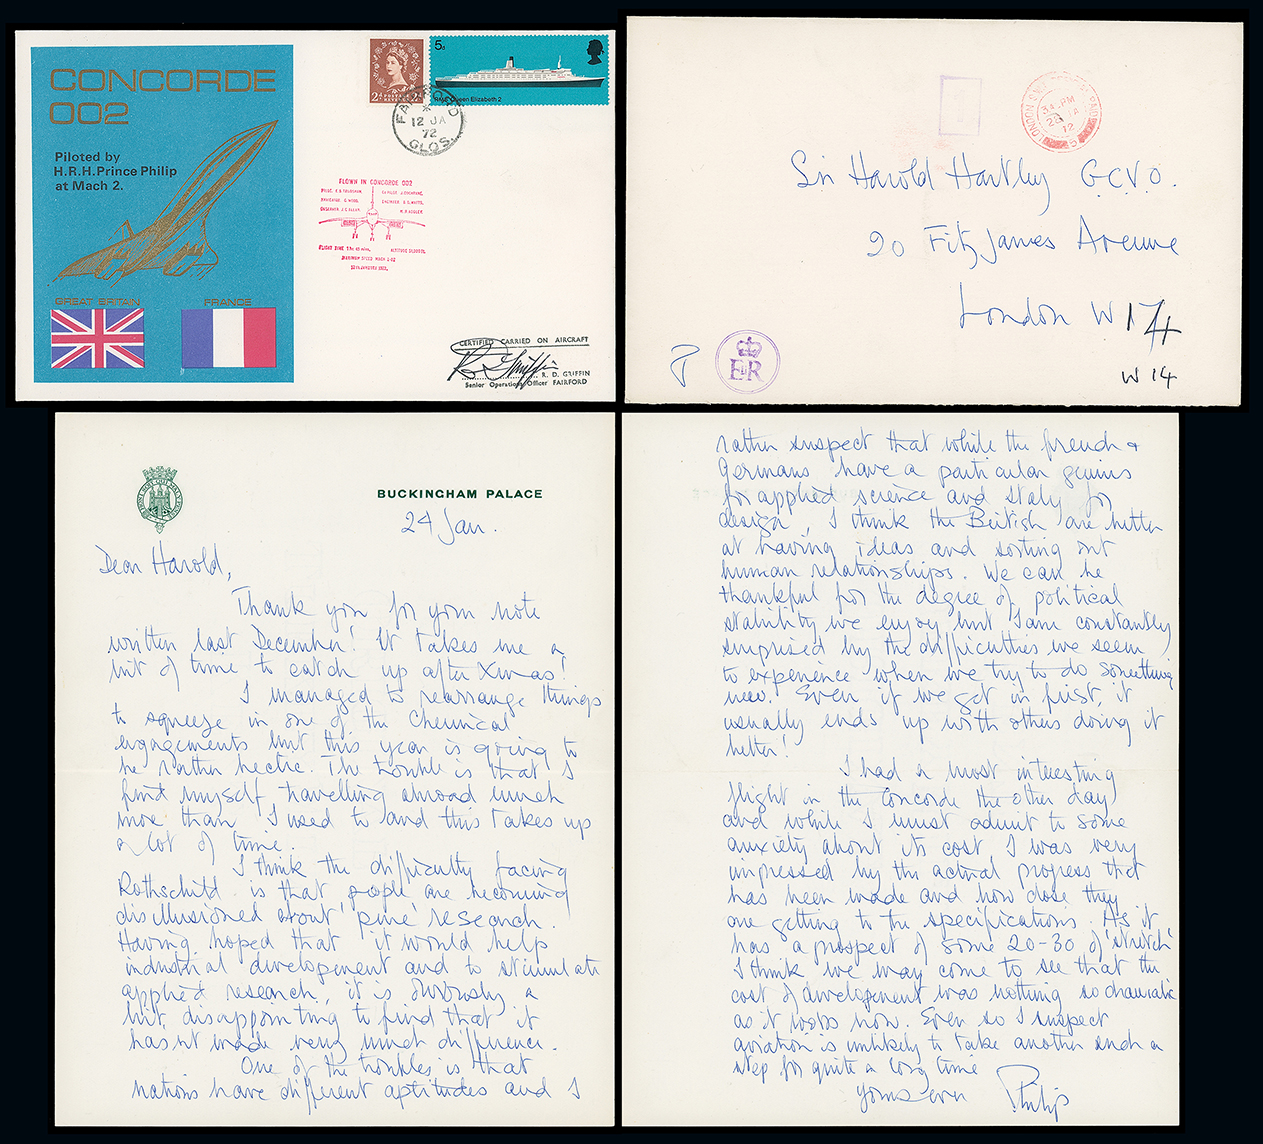 CONCORDE
002
Piloted by
H.R.H.Prince Philip
at Mach 2.
GREAT BRITAIN
FRANCE
5d
RMS Queen Elizabeth 2
2d POSTAGE REVENUE 2d
FAIRFORD
12 JA
72
GLOS.
FLOWN IN CONCORDE 002
CERTIFIED CARRIED ON AIRCRAFT
R. D. GRIFFIN
Senior Operations Officer FAIRFORD
LONDON S.W.
PAID
PM
JA
72
Sir Harold Hartley G.C.V.O.
20 Fitzjames Avenue
London W 14
W 14
EIIR
BUCKINGHAM PALACE
24 Jan.
Dear Harold,
Thank you for your note
written last December! It takes me a
bit of time to catch up after Xmas!
I managed to rearrange things
to squeeze in one of the Chemical
engagements but this year is going to
be rather hectic. The trouble is that I
find myself travelling abroad much
more than I used to and this takes up
a lot of time.
I think the difficulty facing
Rothschild is that people are becoming
disillusioned about 'pure' research.
Having hoped that it would help
industrial development and to stimulate
applied research, it is obviously a
bit disappointing to find that it
hasn't made very much difference.
One of the troubles is that
nations have different aptitudes and I
rather suspect that while the french &
Germans have a particular genius
for applied science and Italy for
design, I think the British are better
at having ideas and sorting out
human relationships. We can be
thankful for the degree of political
stability we enjoy but I am constantly
surprised by the difficulties we seem
to experience when we try to do something
new. Even if we get in first, it
usually ends up with others doing it
better!
I had a most interesting
flight in the Concorde the other day
and while I must admit to some
anxiety about its cost I was very
impressed by the actual progress that
has been made and how close they
are getting to the specifications. As it
has a prospect of some 20-30 of 'stretch'
I think we may come to see that the
cost of development was nothing so dramatic
as it looks now. Even so I suspect
aviation is unlikely to take another such a
step for quite a long time
Yours ever
Philip